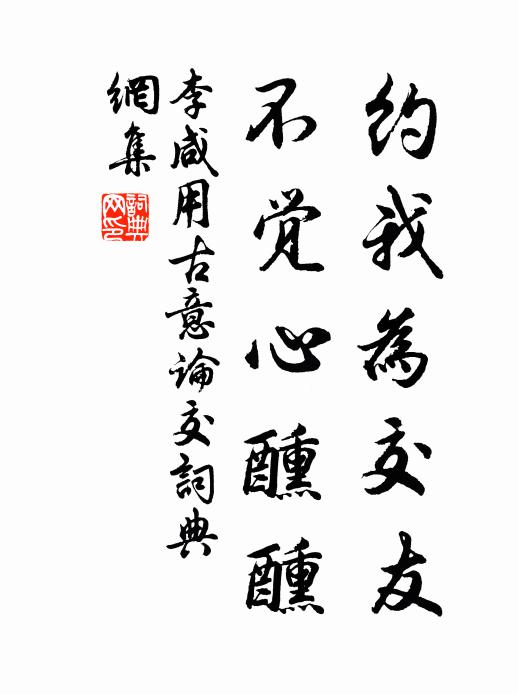 约我為交友
不覚心醺醺
李咸用古意論交詞典
網集
詞典网印